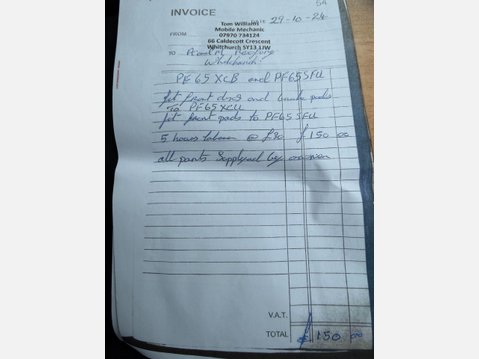 54
INVOICE
Tom William
Mobile Mechanic
DATE 29-10-24
FROM 07970 734124
66 Caldecott Crescent
Whitchurch SY13 1JW
TO
Whitchurch
PF65XCB and PF65SFU
fit front discs and brake pads
TO PF65XCU
fit front pads to PF65SFU
5 hours labour @ £30 £150 00
all parts supplyed by
V.A.T.
TOTAL £150 00